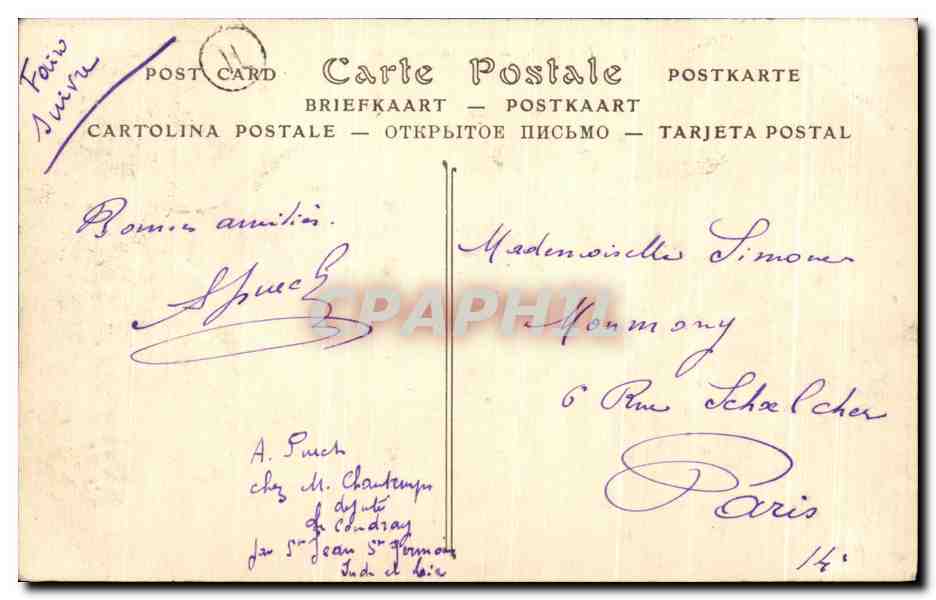 Faire
suivre
11
POST CARD Carte Postale POSTKARTE
BRIEFKAART — POSTKAART
CARTOLINA POSTALE — ОТКРЫТОЕ ПИСЬМО — TARJETA POSTAL
Bonnes amitiés.
A Puech
CPAPHIL
Mademoiselle Simone
Moumony
6 Rue Schœlcher
Paris
A. Puech
chez M. Chautemps
député
Coudray
par St Jean St Germain
Indre et Loire
14e